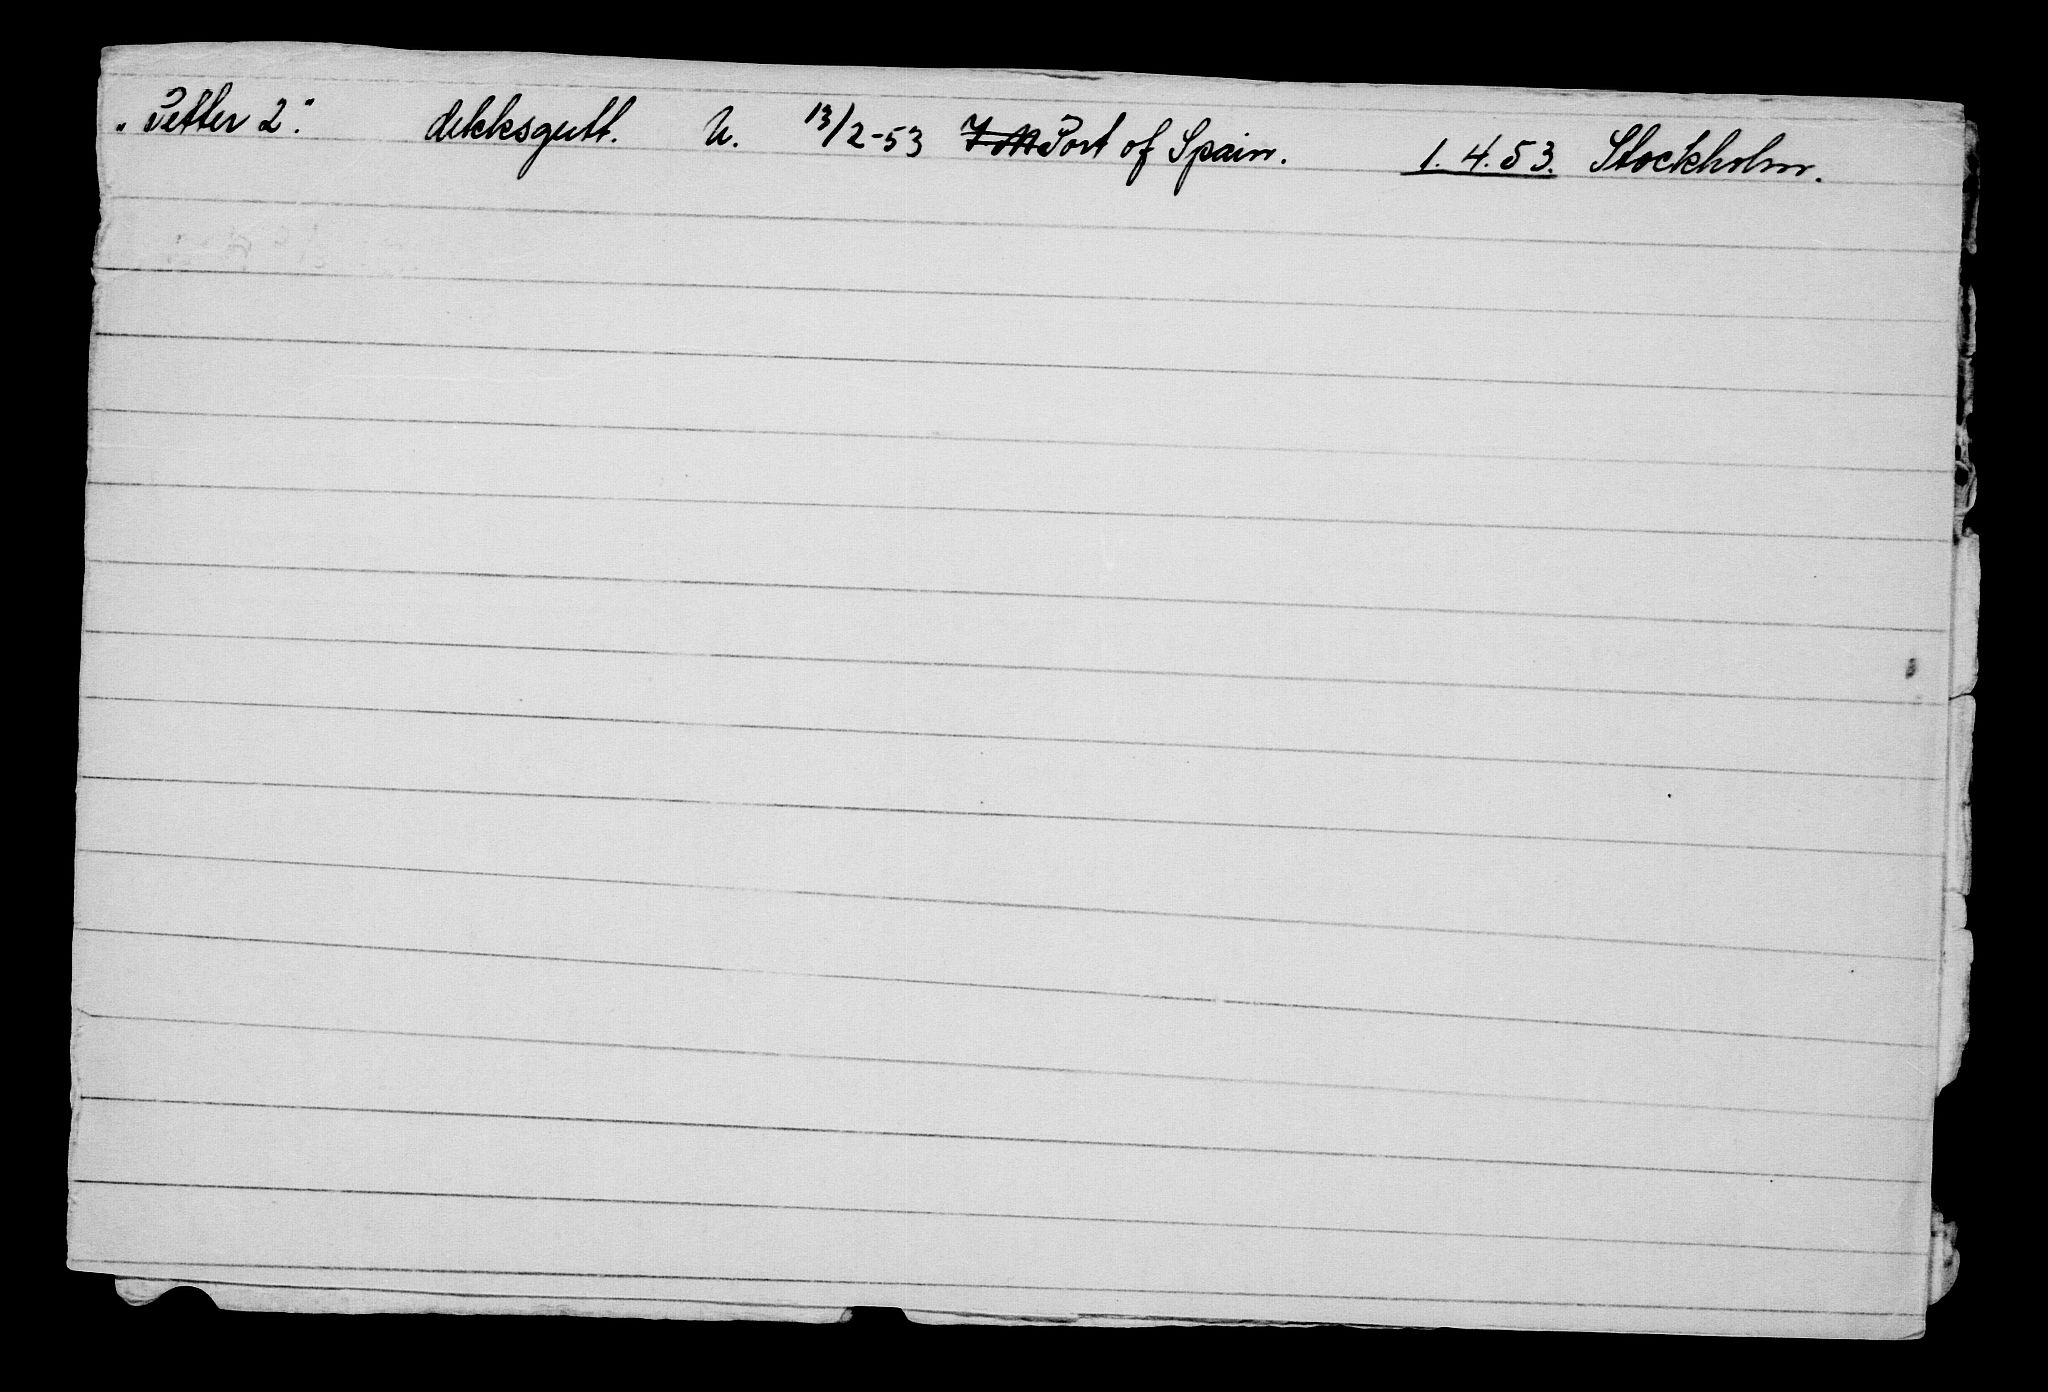 „Petter 2". dekksgutt. U. 13/2-53 Port of Spain. 1.4.53. Stockholm.